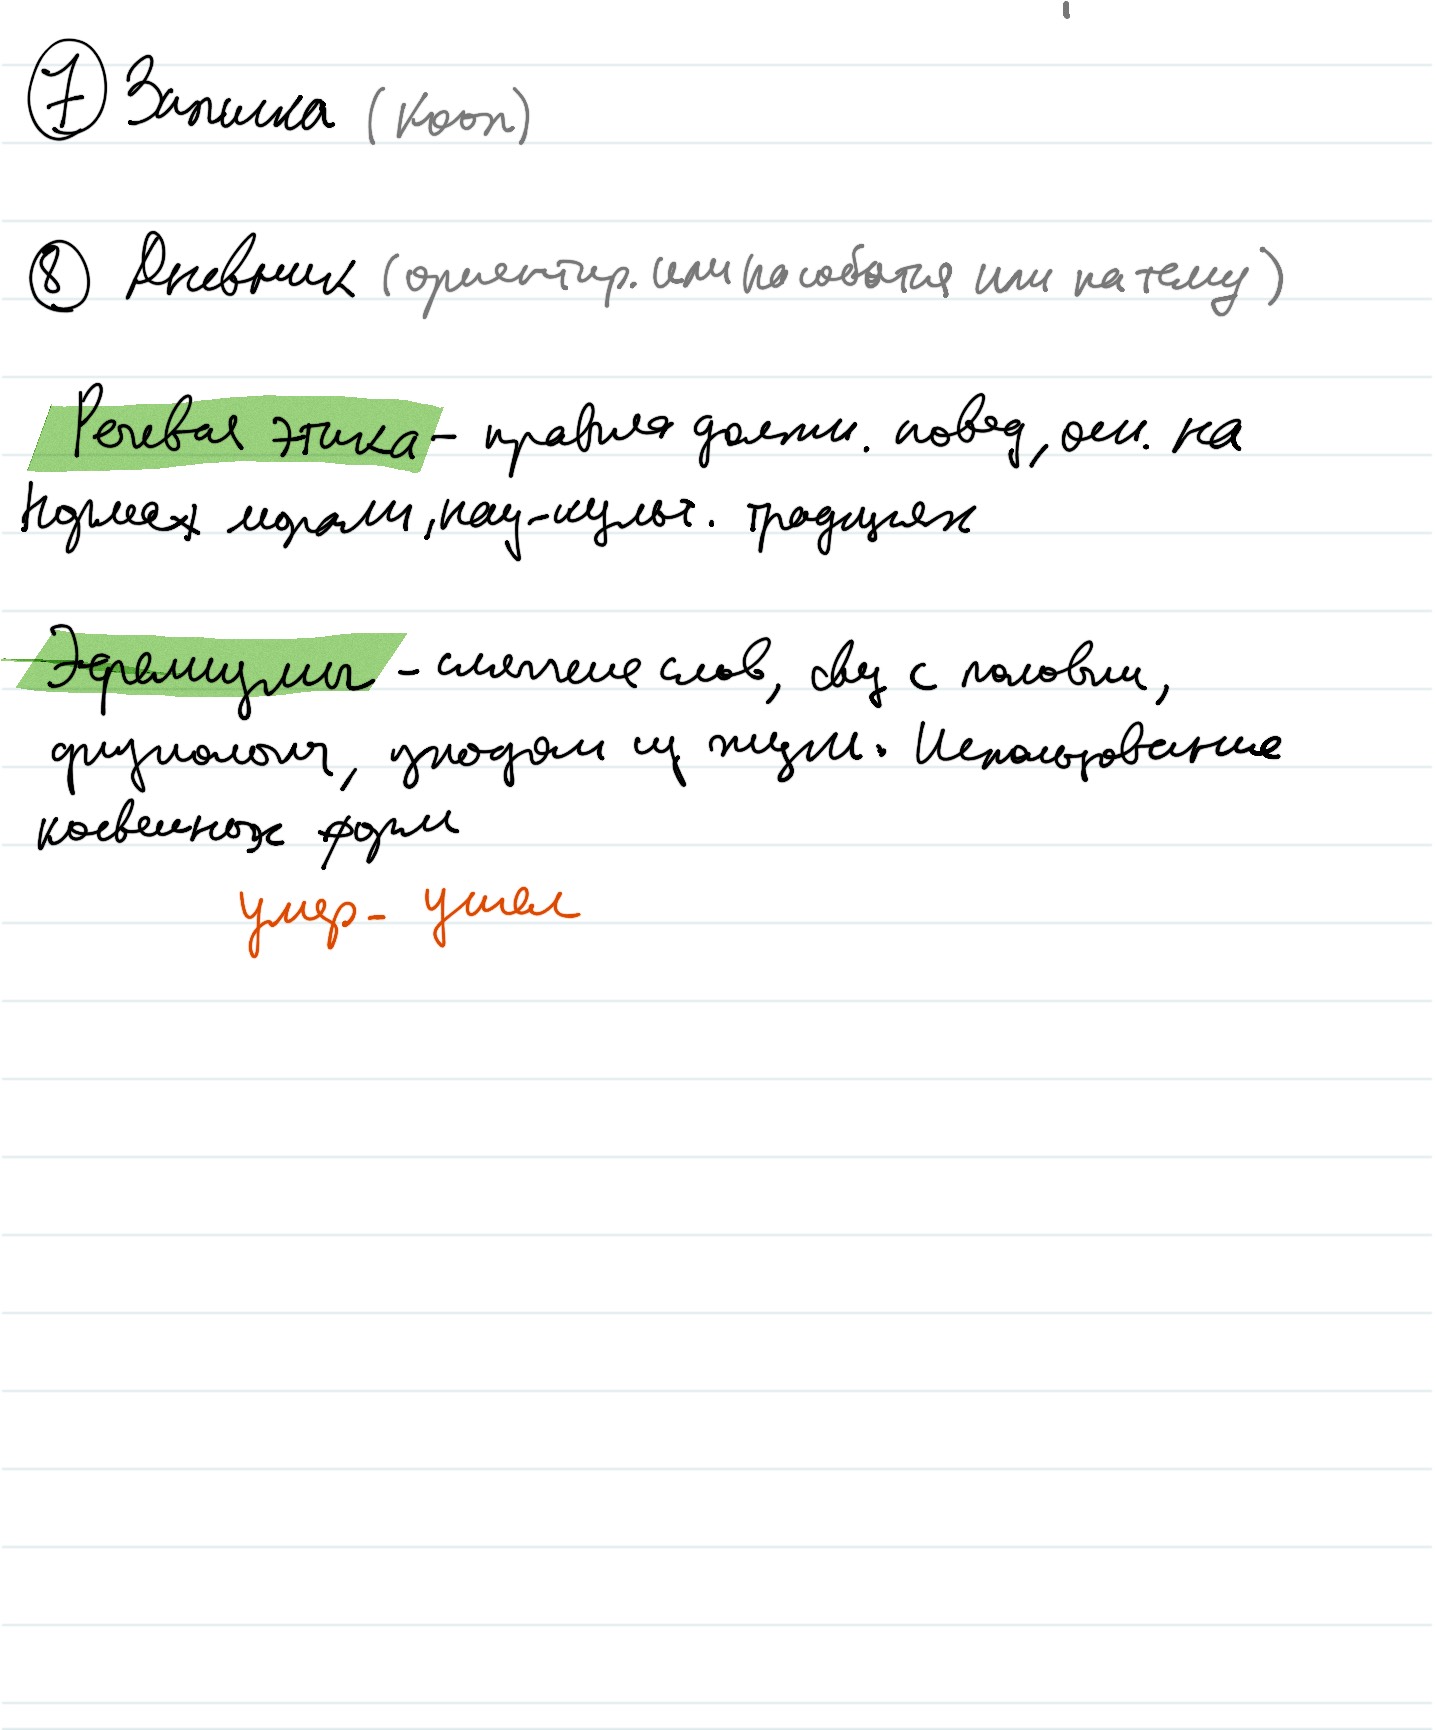 7 Записка (кооп)
8 Дневник (ориентир. или на события или на тему)
Речевая этика - правила должн. повед, осн. на
нормах морали, нац-культ. традициях
Эвфемизмы - смягчение слов, связ с половым,
физиологич, уходом из жизни. Использование
косвенных форм
умер - ушел